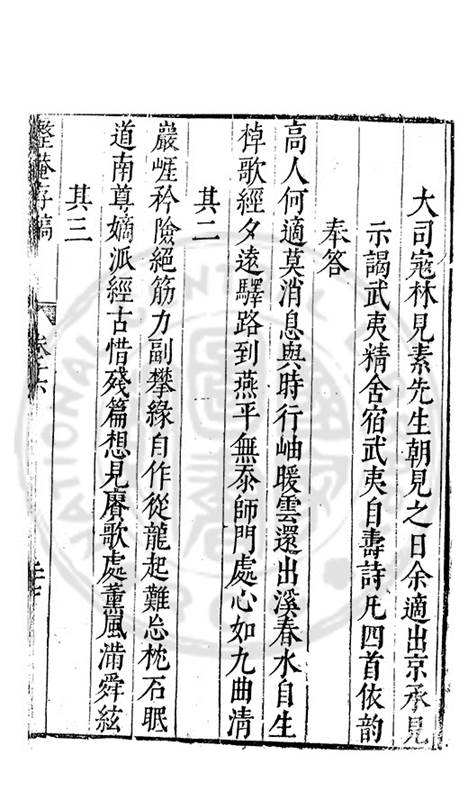 大司寇林見素先生朝見之日余適出京承見
示謁武夷精舍宿武夷自壽詩凡四首依韵
奉答
高人何適莫消息與時行岫暖雲還出溪春水自生
棹歌經夕遠驛路到燕平無泰師門處心如九曲清
其二
巖崕矜險絕筋力副攀緣自作從龍起難忘枕石眠
道南尊嫡派經古惜殘篇想見賡歌處薰風滿舜絃
其三
整菴存稿
卷十六
二十七